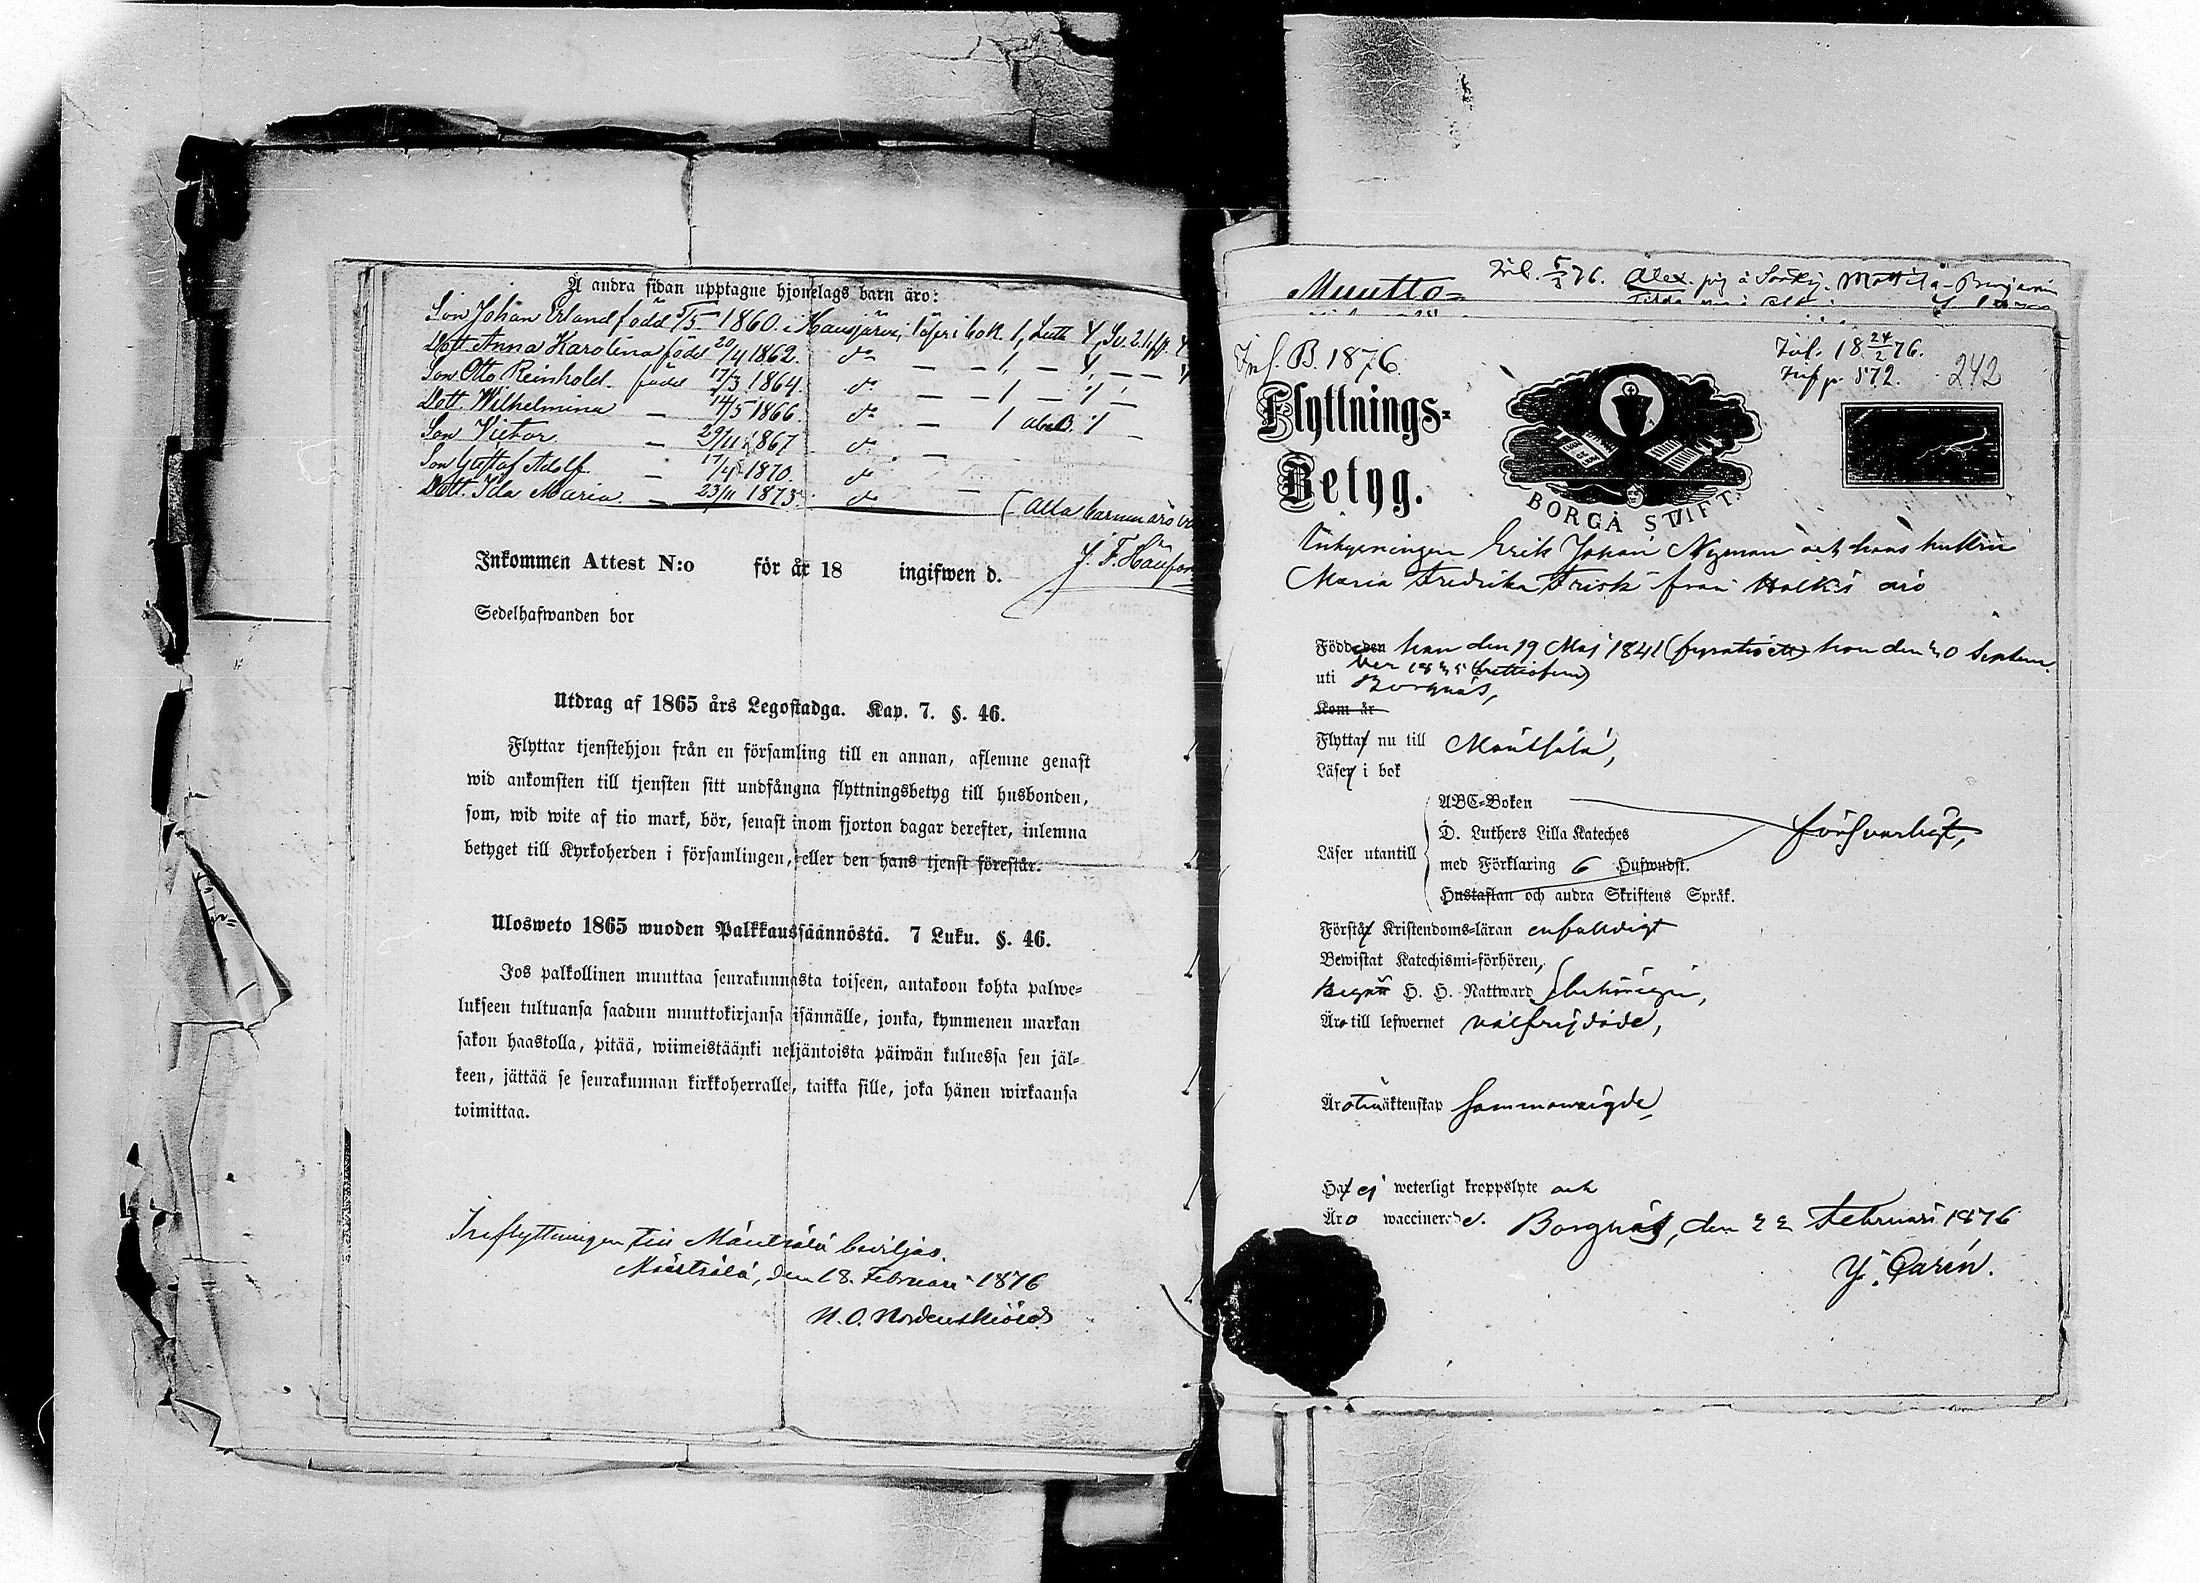 Å andra sidan upptagne hjonelags barn äro:
Son Johan Erland född 5/5 1860 i Hausjärvi, läser i bok 1, Luth
Dott. Anna Karolina född 20/4 1862. do
Son Otto Reinhold. född 17/3 1864. do
Dott. Wilhelmina — 14/5 1866. do
Son Victor — 29/11 1867 do
Son Gustaf Adolf — 1870. do
Dott. Ida Maria — 23/11 1873. do
(Alla barnen äro
Inkommen Attest N:o för år 18 ingifwen d.
Sedelhafwanden bor
Utdrag af 1865 års Legostadga. Kap. 7. §. 46.
Flyttar tjenstehjon från en församling till en annan, aflemne genast
wid ankomsten till tjensten sitt undfångna flyttningsbetyg till husbonden,
som, wid wite af tio mark, bör, senast inom fjorton dagar derefter, inlemna
betyget till Kyrkoherden i församlingen, eller den hans tjenst förestår.
Ulosweto 1865 wuoden Palkkaussäännöstä. 7 Luku. §. 46.
Jos palkollinen muuttaa seurakunnasta toiseen, antakoon kohta palwe-
lukseen tultuansa saadun muuttokirjansa isännälle, jonka, kymmenen markan
sakon haastolla, pitää, wiimeistäänki neljäntoista päiwän kuluessa sen jäl-
keen, jättää se seurakunnan kirkkoherralle, taikka sille, joka hänen wirkaansa
toimittaa.
Inflyttningen till Mäntsälä beviljas.
Mäntsälä, den 18. Februari 1876
N. O. Nordenskiöld
Muutto=
Inl. 5/2 76. Alex. Mattila Benjamin
Inf. B. 1876.
Inl. 18 24/2 76.
Inf p. 572. 242
Flyttnings=
Betyg.
BORGÅ STIFT
Inhysningen Erik Johan Nyman och hans hustru
Maria Fredrika Frisk från äro
Födde den han den 19 Maj 1841 (fyratioett) hon den 30 Septem-
ber 1835 (trettiofem)
uti Borgnäs,
Kom år
Flyttar nu till Mäntsälä,
Läser i bok
ABC=Boken
D. Luthers Lilla Kateches
Läser utantill försvarligt,
med Förklaring 6 Hufwudst.
Hustaflan och andra Skriftens Språk.
Förstår Kristendoms=läran enfaldigt
Bewistat Katechismi=förhören,
Begått H. H. Nattward behörigen,
Äro till lefwernet välfrejdade,
Äro till äktenskap sammanvigde
Hafva ej weterligt kroppslyte och
Äro waccinerade. Borgnäs, den 22 Februari 1876